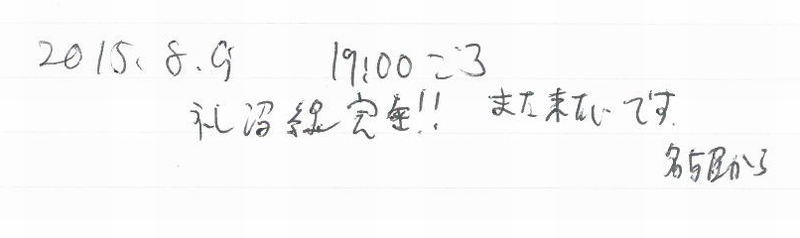 2015. 8. 9 19:00ごろ
札沼線完乗!! また来たいです.
名古屋から